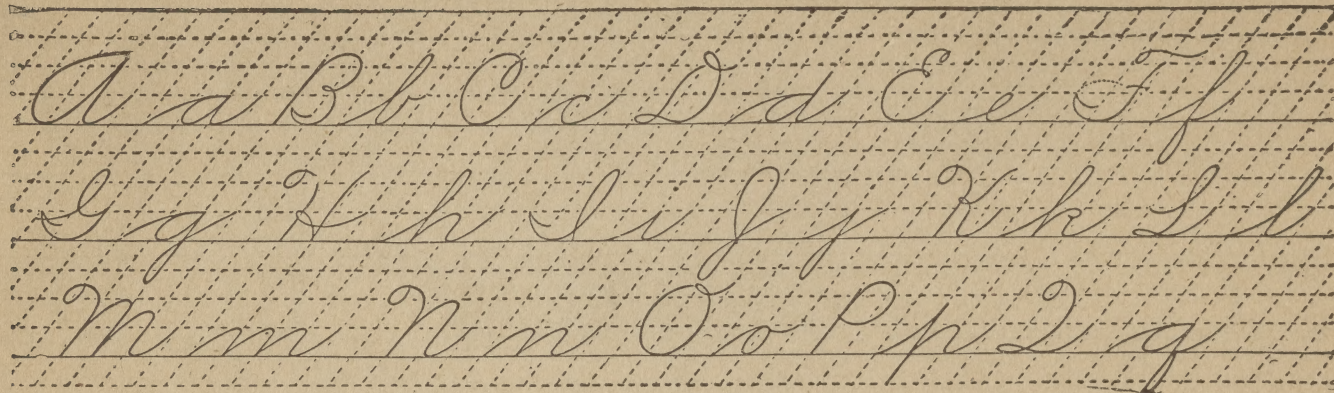 A a B b C c D d E e F f
G g H h I i J j K k L l
M m N n O o P p Q q